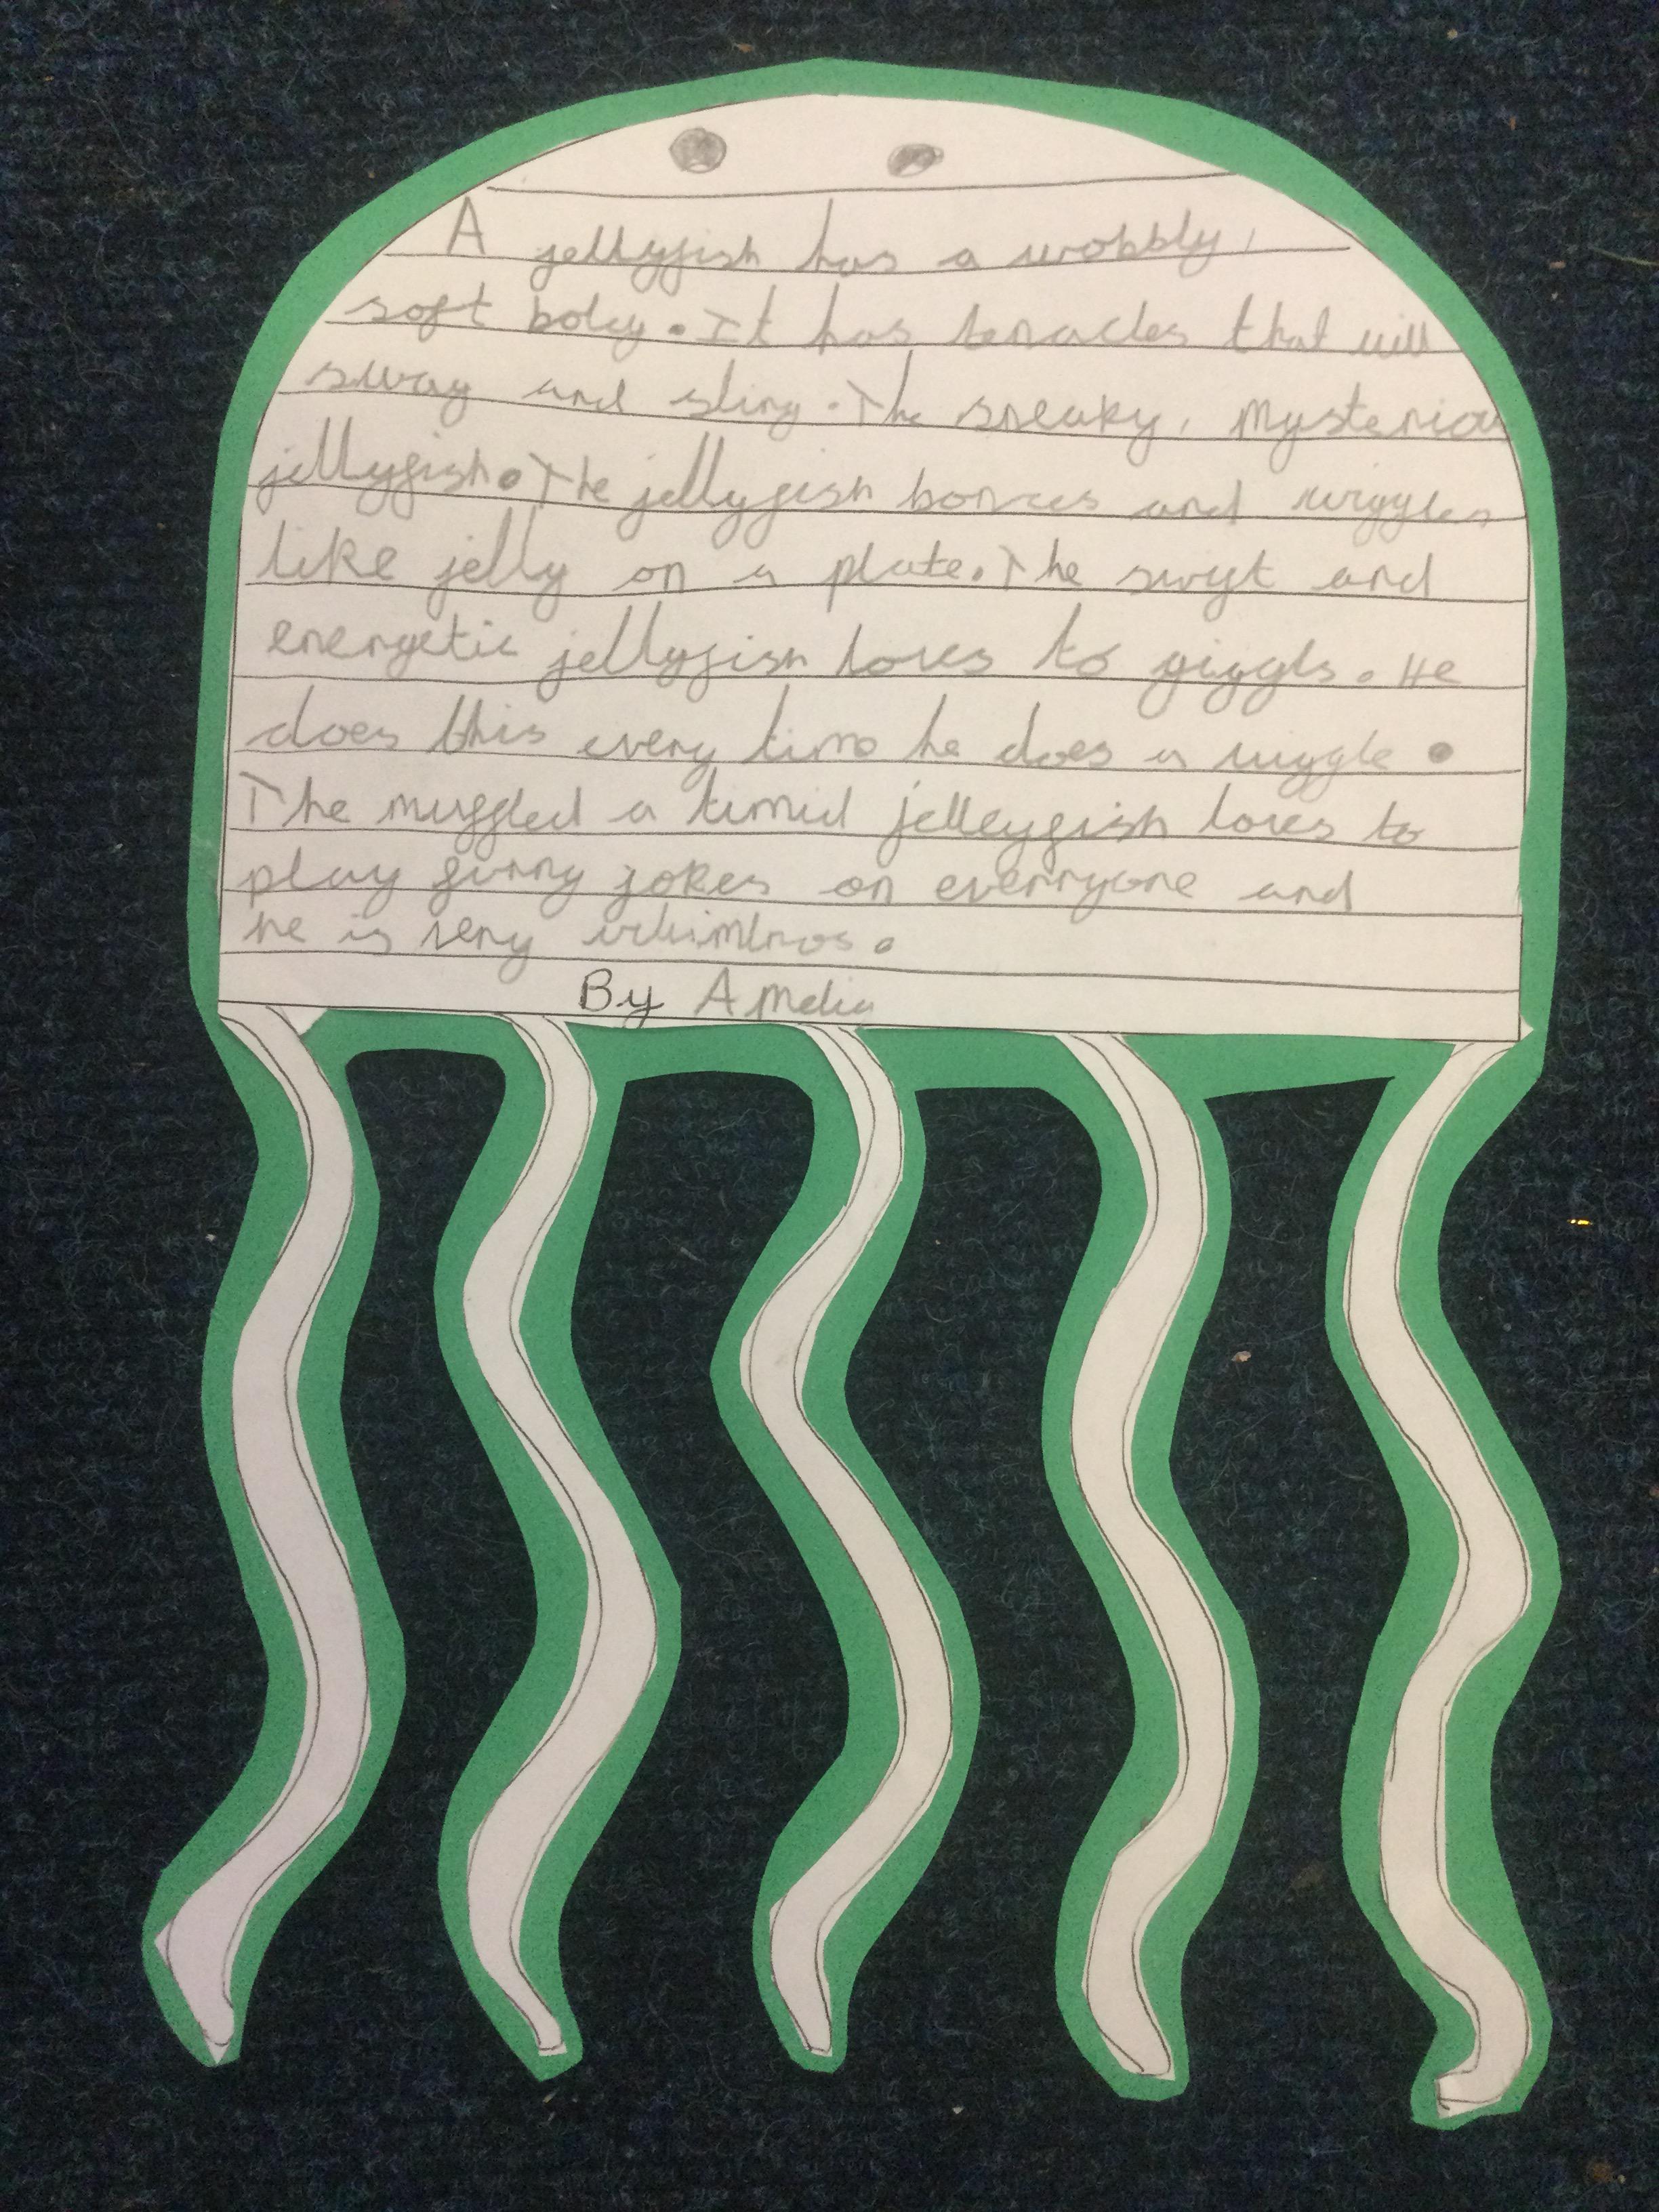 A jellyfish has a wobbly,
soft body. It has tenacles that will
sway and sting. The sneaky, mysteriou
jellyfish. The jellyfish bonces and wiggles
like jelly on a plate. The swyt and
energetic jellyfish loves to giggls. He
does this every time he does a wiggle.
The muffled a timid jelleyfish loves to
play funny jokes on everryone and
he is very
By Amelia